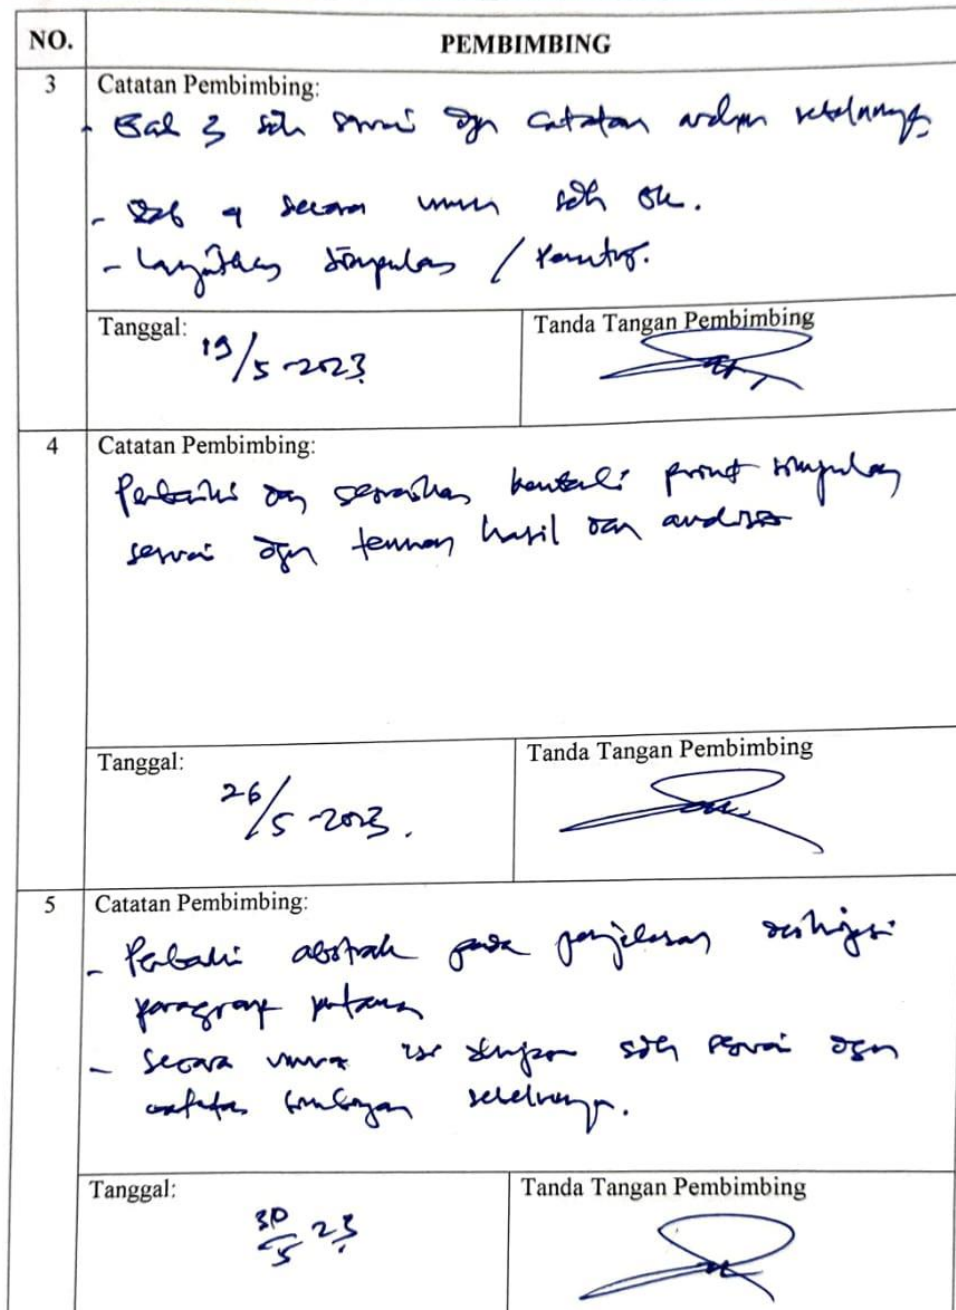 NO. PEMBIMBING
3 Catatan Pembimbing:
- Bab 3 sdh sesuai dgn catatan sebelumnya
- Bab 4 secara umum sdh ok.
- Lanjutkan simpulan /
Tanggal: 19/5-2023 Tanda Tangan Pembimbing
4 Catatan Pembimbing:
Perbaiki dan sesuaikan kembali point simpulan
sesuai dgn temuan hasil dan analisa
Tanggal: 26/5-2023. Tanda Tangan Pembimbing
5 Catatan Pembimbing:
- Perbaiki abstrak pada penjelasan deskripsi
paragraf pertama
- Secara umum isi sdh sesuai dgn
catatan bimbingan sebelumnya.
Tanggal: 30/5 23 Tanda Tangan Pembimbing